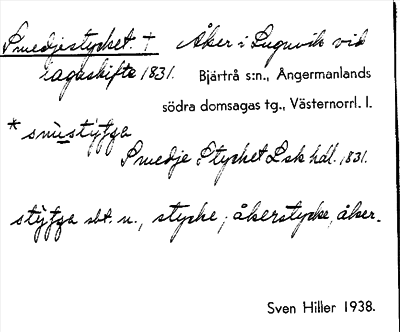 Smedjestycket. † Åker i Lugnvik vid
lagaskifte 1831. Bjärtrå s:n., Ångermanlands
södra domsagas tg., Västernorrl. l.
* smi̱stýtjga
Smedje Stycket Lsk hdl. 1831.
stýtjga sbt. n., stycke; åkerstycke, åker.
Sven Hiller 1938.